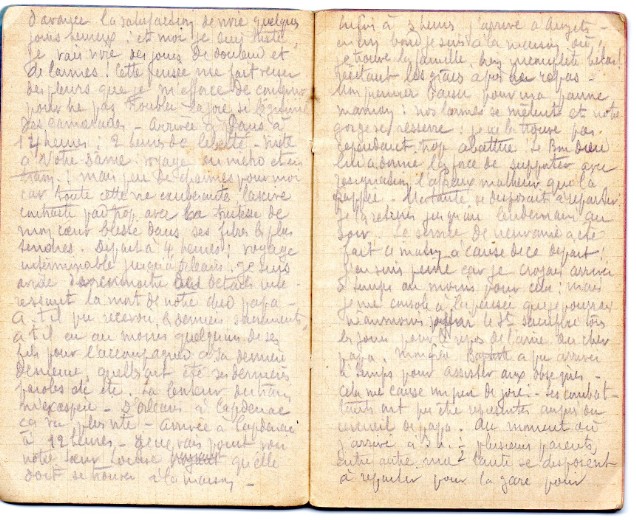 d'avance la satisfaction de vivre quelques
jours heureux ; et moi je suis triste
je vais vivre des jours de douleur et
de larmes ! Cette pensée me fait verser
des pleurs que je m'efforce de
pour ne pas troubler la joie si légitime
des camarades - Arrivée à Paris à
14 heures ; 2 heures de liberté - visite
à Notre Dame : voyage en métro et en
tram ; mais peu de charmes pour moi
car toute cette
contraste par trop avec la tristesse de
mon cœur blessé dans ses fibres les plus
tendres. Départ à 4 heures ; voyage
interminable jusqu'à Orléans. Je suis
avide de connaître les détails inté-
ressant la mort de notre cher papa -
A-t-il pu recevoir les derniers sacrements,
a-t-il eu au moins quelques-uns de ses
fils pour l'accompagner à sa dernière
demeure, quelles ont été ses dernières
paroles etc etc. La lenteur du train
m'exaspère - D'Orléans à Capdenac
ça va plus vite - Arrivée à Capdenac
à 12 heures - Je ne vais point voir
notre sœur Louise qu'elle
doit se trouver à la maison -
Enfin à 3 heures j'arrive à
en un bond je suis à la maison où
je trouve la famille, bien incomplète hélas !
récitant les grâces après le repas -
Mon premier baiser pour ma pauvre
maman ; nos larmes se mêlent et notre
gorge se resserre ; je ne la trouve pas
cependant trop abattue. Le Bon Dieu
lui a donné la force de supporter avec
résignation l'affreux malheur qui l'a
frappée. Ma tante se disposait à repartir ;
je la retiens jusqu'au lendemain au
soir. Le service de neuvaine a été
fait ce matin à cause de ce départ ;
j'en suis peiné car je croyais arriver
à temps au moins pour cela ; mais
je me console à la pensée que je pourrai
néanmoins offrir le St sacrifice tous
les jours pour le repos de l'âme du cher
papa. a pu arriver
à temps pour assister aux obsèques -
cela me cause un peu de joie : les combat-
tants ont pu être représentés auprès du
cercueil de papa. Au moment où
j'arrive à 3 h. : plusieurs parents,
entre autre, ma tante se disposaient
à repartir pour la gare pour